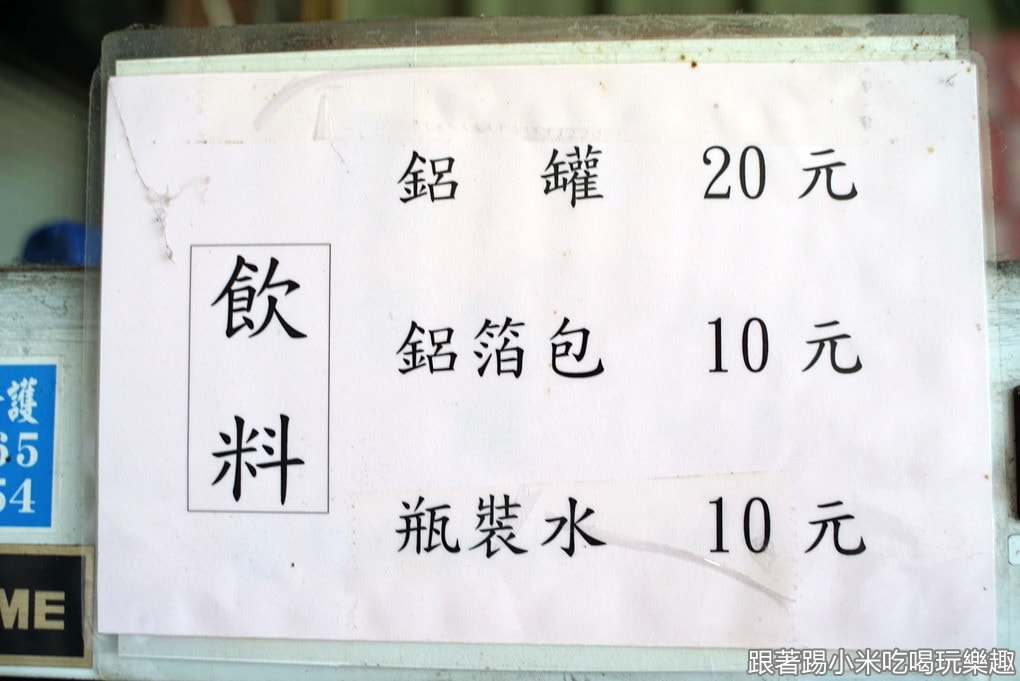 飲料
鋁罐 20 元
鋁箔包 10 元
瓶裝水 10 元
護
65
54
ME
跟著踢小米吃喝玩樂趣